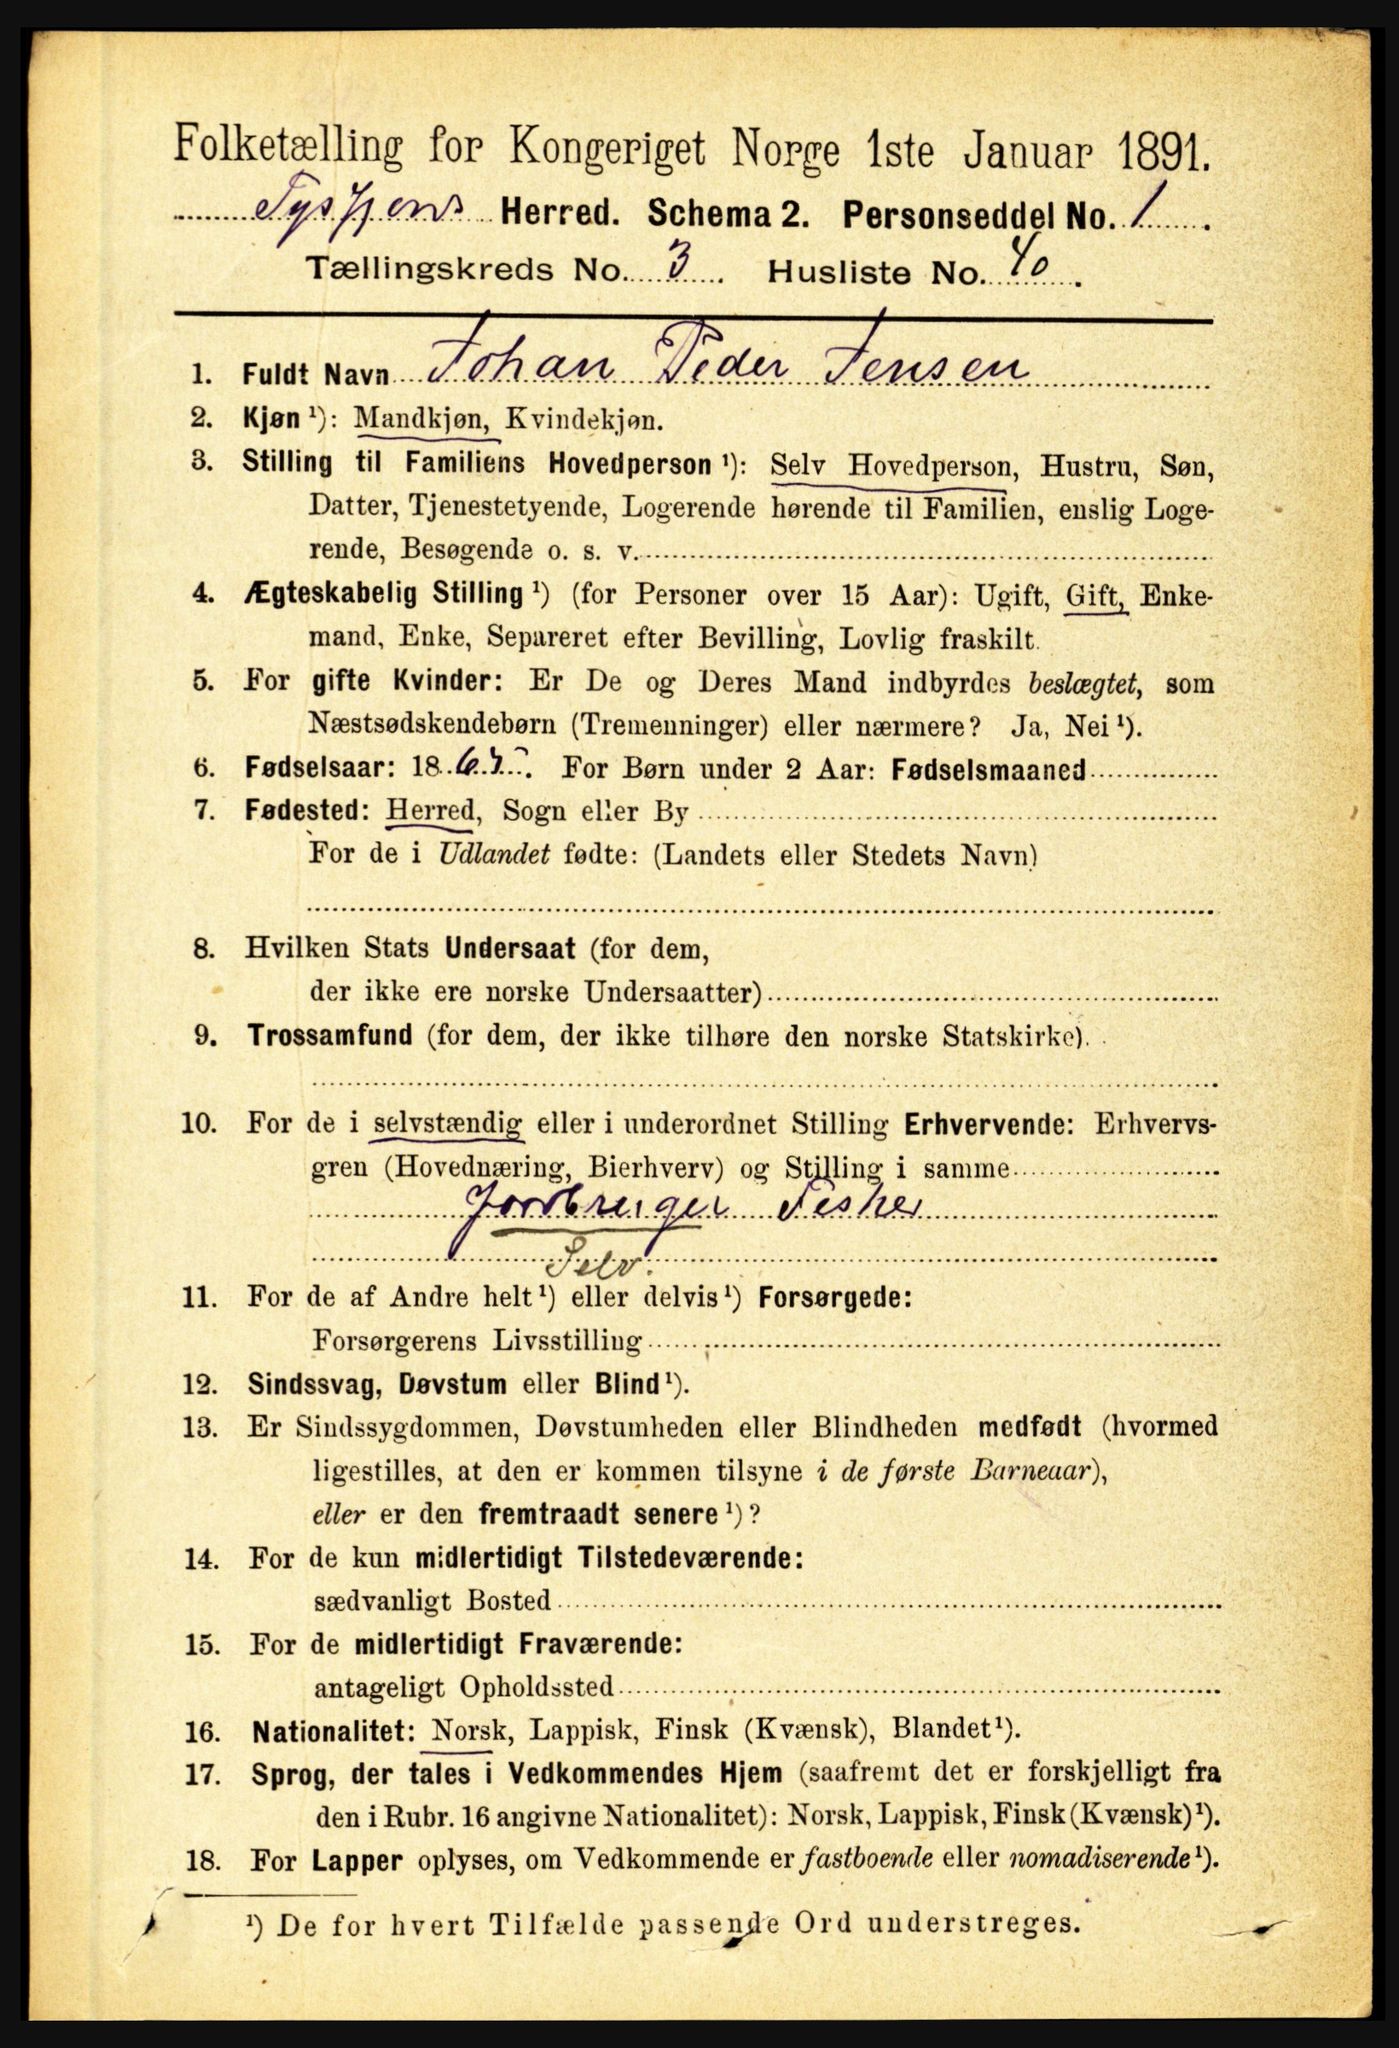 Folketælling for Kongeriget Norge 1ste Januar 1891.
Tysfjords Herred. Schema 2. Personseddel No. 1.
Tællingskreds No. 3. Husliste No. 40.
1. Fuldt Navn Johan Peder Jensen
2. Kjøn ¹): Mandkjøn, Kvindekjøn.
3. Stilling til Familiens Hovedperson ¹): Selv Hovedperson, Hustru, Søn,
Datter, Tjenestetyende, Logerende hørende til Familien, enslig Loge-
rende, Besøgende o. s. v.
4. Ægteskabelig Stilling ¹) (for Personer over 15 Aar): Ugift, Gift, Enke-
mand, Enke, Separeret efter Bevilling, Lovlig fraskilt.
5. For gifte Kvinder: Er De og Deres Mand indbyrdes beslægtet, som
Næstsødskendebørn (Tremenninger) eller nærmere? Ja, Nei ¹).
6. Fødselsaar: 18 For Børn under 2 Aar: Fødselsmaaned
7. Fødested: Herred, Sogn eller By
For de i Udlandet fødte: (Landets eller Stedets Navn)
8. Hvilken Stats Undersaat (for dem,
der ikke ere norske Undersaatter)
9. Trossamfund (for dem, der ikke tilhøre den norske Statskirke).
10. For de i selvstændig eller i underordnet Stilling Erhvervende: Erhvervs-
gren (Hovednæring, Bierhverv) og Stilling i samme
Jordbruger Fisker
Selv.
11. For de af Andre helt ¹) eller delvis ¹) Forsørgede:
Forsørgerens Livsstilling
12. Sindssvag, Døvstum eller Blind ¹).
13. Er Sindssygdommen, Døvstumheden eller Blindheden medfødt (hvormed
ligestilles, at den er kommen tilsyne i de første Barneaar),
eller er den fremtraadt senere ¹)?
14. For de kun midlertidigt Tilstedeværende:
sædvanligt Bosted
15. For de midlertidigt Fraværende:
antageligt Opholdssted
16. Nationalitet: Norsk, Lappisk, Finsk (Kvænsk), Blandet ¹).
17. Sprog, der tales i Vedkommendes Hjem (saafremt det er forskjelligt fra
den i Rubr. 16 angivne Nationalitet): Norsk, Lappisk, Finsk (Kvænsk) ¹).
18. For Lapper oplyses, om Vedkommende er fastboende eller nomadiserende ¹).
¹) De for hvert Tilfælde passende Ord understreges.